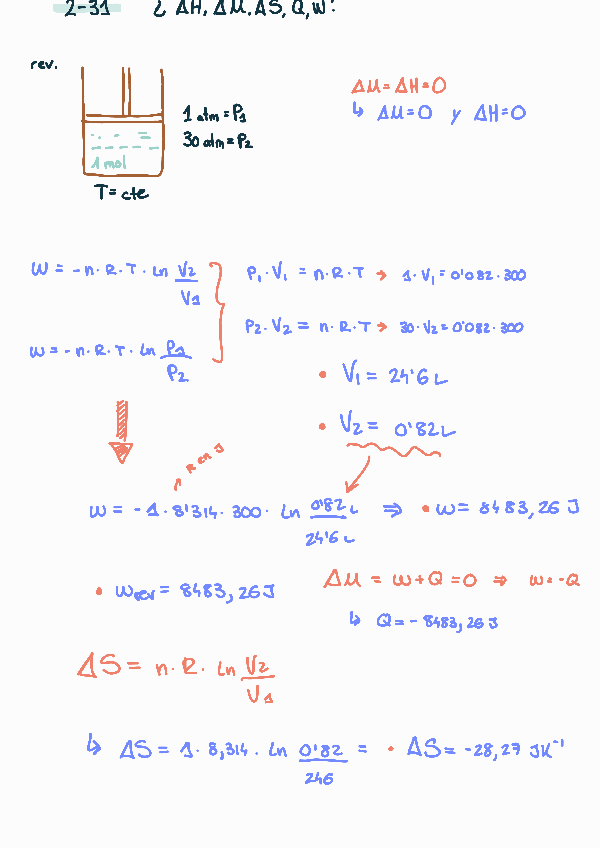 2-31 ¿ ΔH, ΔU, ΔS, Q, W?
rev.
1 atm = P1
30 atm = P2
1 mol
T = cte
ΔU = ΔH = 0
↳ ΔU = 0 y ΔH = 0
W = -n·R·T·Ln V2/V1
W = -n·R·T·Ln P1/P2
P1·V1 = n·R·T → 1·V1 = 0'082·300
P2·V2 = n·R·T → 30·V2 = 0'082·300
• V1 = 24'6 L
• V2 = 0'82 L
R en J
W = -1·8'314·300·Ln 0'82 L/24'6 L ⇒ • W = 8483,26 J
• Wrev = 8483,26 J
ΔU = W + Q = 0 ⇒ W = -Q
↳ Q = -8483,26 J
ΔS = n·R·Ln V2/V1
↳ ΔS = 1·8,314·Ln 0'82/246 = • ΔS = -28,27 JK⁻¹